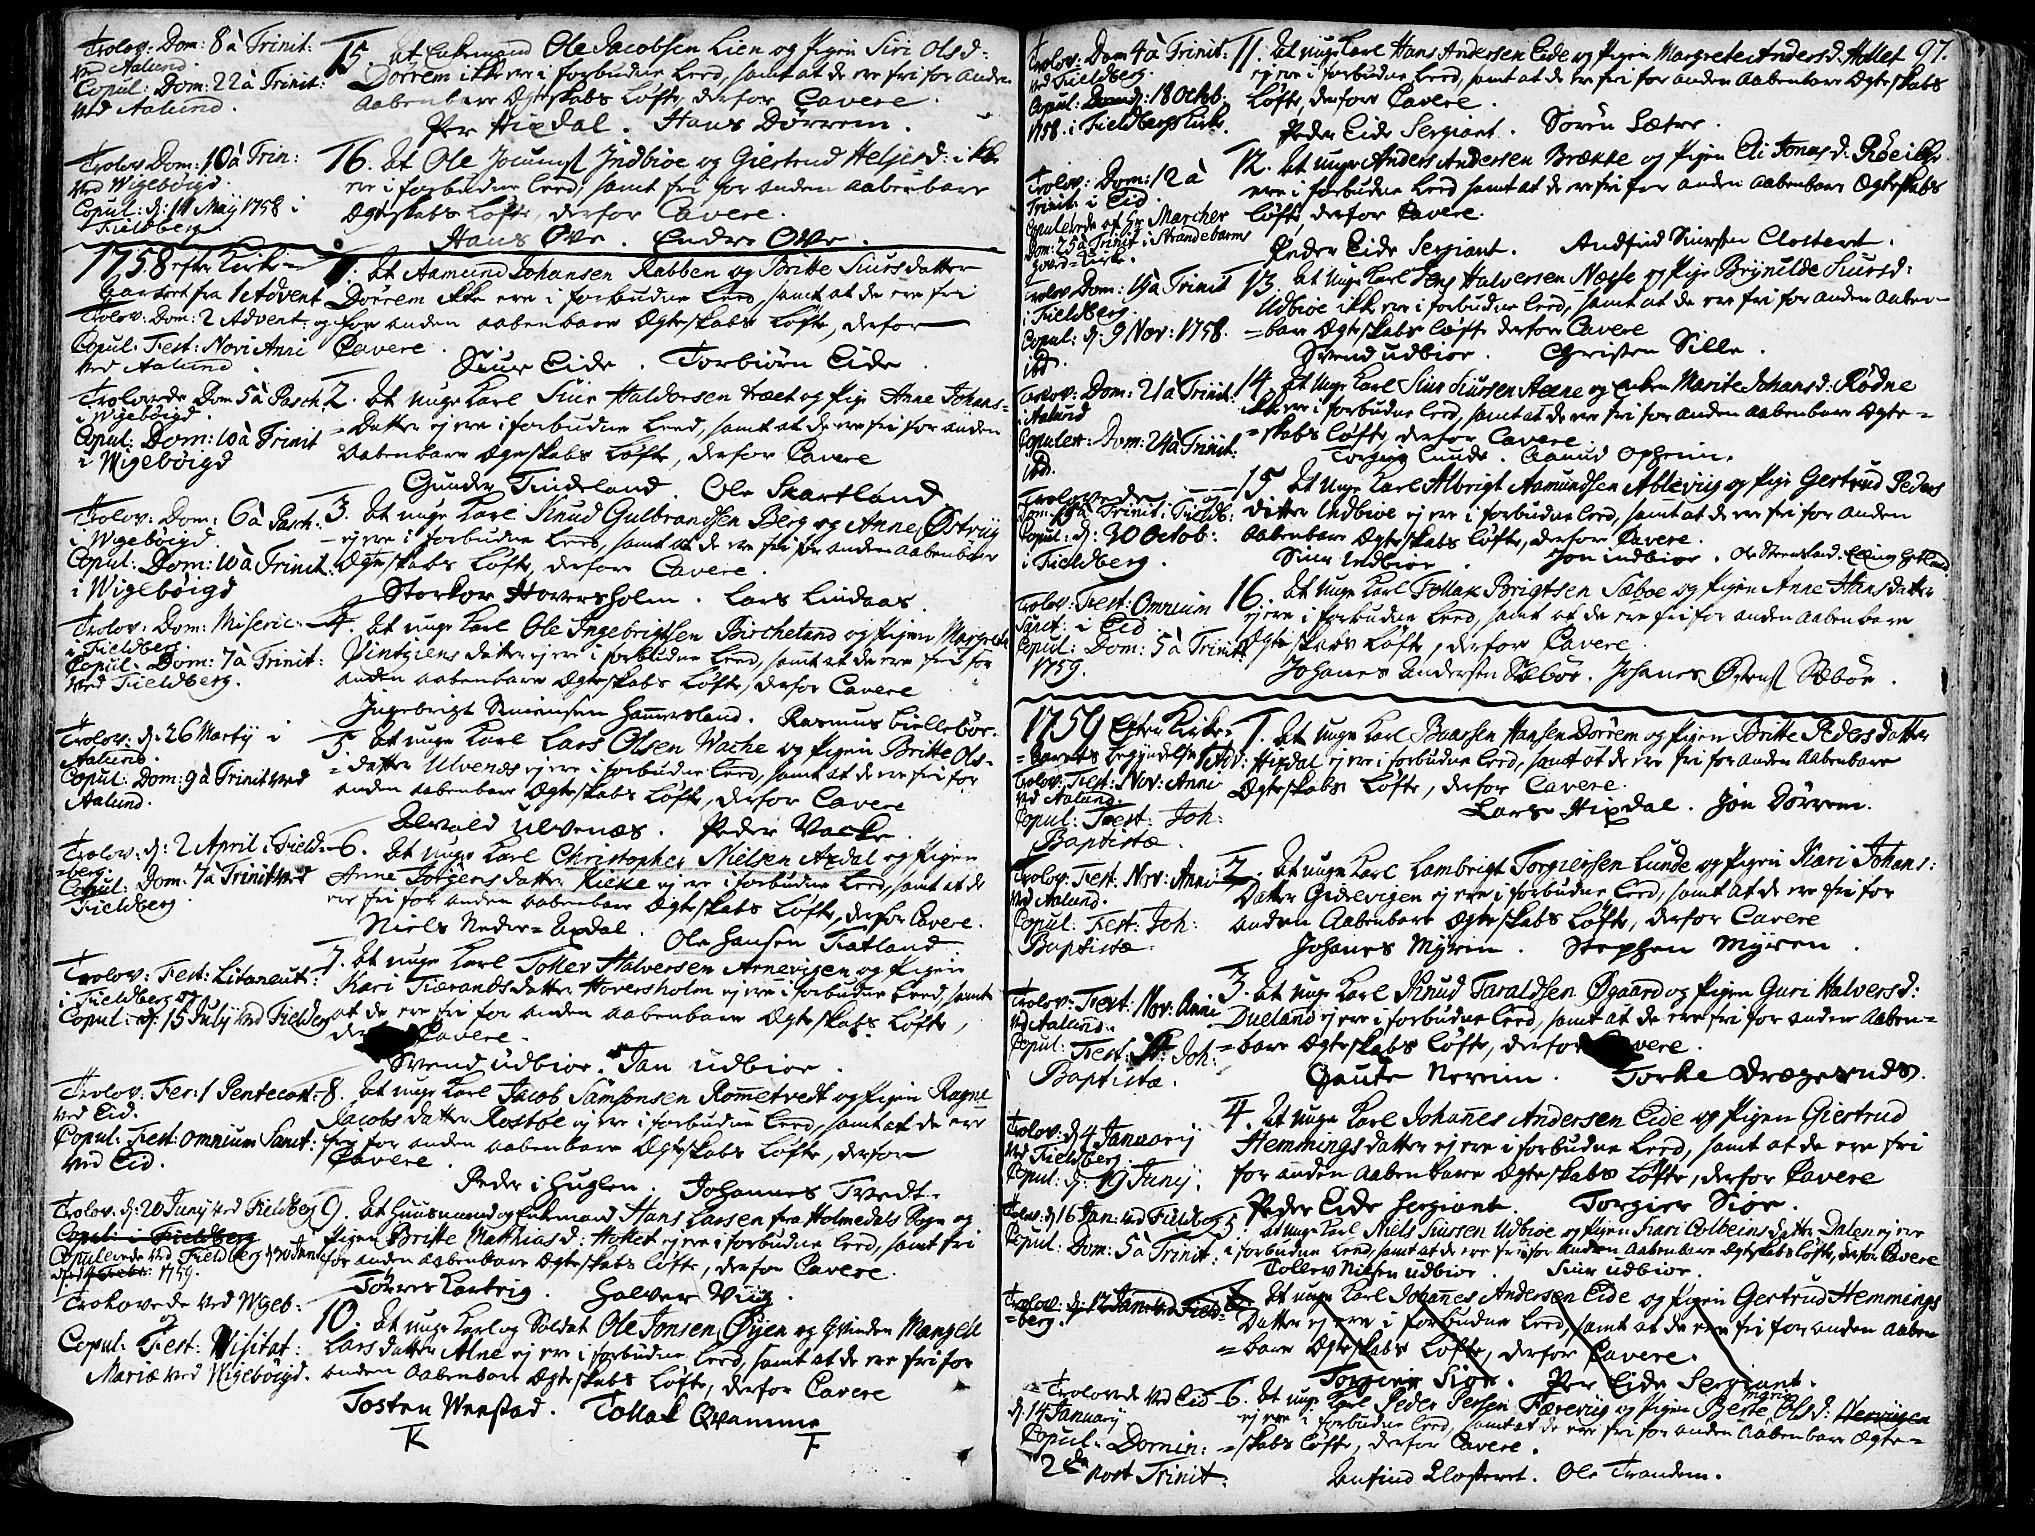 Trolov: Dom: 8 à Trinit:
ved Aalund.
Copul: Dom: 22 à Trinit:
ved Aalund.
15. At Enkemand Ole Jacobsen Lien og Pigen Siri Olsd:
Dörrem ikke ere i forbudne Leed, samt at de ere fri for anden
aabenbare Ægteskabs Løfte, derfor Cavere.
Per Hixdal. Hans Dörrem.
Trolov: Dom: 10 à Trin:
ved Wigeböigd.
Copul: d: 11 Maij 1758 i
Fieldberg.
16. At Ole Indbioe og Giertrud Heljesd:
ere i forbudne Leed, samt fri for anden aabenbare
Ægteskabs Løfte, derfor Cavere.
Hans Øvre. Endre Øvre.
1758 efter Kirke-
aaret fra 1 Advent
Trolov: Dom: 2 Advent: og
Copul: Fest: Novi Anni
ved Aalund.
1. At Aamund Johansen Rabben og Britte Siursdatter
Dörrem ikke ere i forbudne Leed, samt at de ere fri
for anden aabenbare Ægteskabs Løfte, derfor
Cavere.
Siur Eide. Torbiörn Eide.
Trolovede Dom 5 à Pasch:
i Wigeböigd
Copul: Dom: 10 à Trinit
i Wigeböigd
2. At unge Karl Siur Haldorsen Træet og Pige Anne Johans=
=Datter ej ere i forbudne Leed, samt at de ere fri for anden
aabenbare Ægteskabs Løfte, derfor Cavere
Gunder Tindeland. Ole Skartland
Trolov: Dom: 6 à Pasch:
i Wigebøigd.
Copul: Dom: 10 à Trinit:
i Wigebøigd
3. At unge Karl Knud Gulbrandsen Berg og Anne Østvig
ej ere i forbudne Leed, samt at de ere fri for anden aabenbare
Ægteskabs Løfte, derfor Cavere.
Storkor Hoversholm. Lars Lindaas.
Trolov: Dom: Miseric:
i Fieldberg.
Copul: Dom: 7 à Trinit:
ved Fieldberg.
4. At unge Karl Ole Ingebrigtsen Bircheland og Pigen Margrete
datter ej ere i forbudne Leed, samt at de ere fri for
anden aabenbare Ægteskabs Løfte, derfor Cavere
Ingebrigt Hammersland. Rasmus Biellebör.
Trolov: d: 26 Martij i
Aalund.
Copul: Dom: 9 à Trinit ved
Aalund.
5. At unge Karl Lars Olsen Wache og Pigen Britte Ols-
=datter Ulvenæs ej ere i forbudne Leed, samt at de ere fri for
anden aabenbare Ægteskabs Løfte, derfor Cavere
Ulvenæs. Peder Vache.
Trolov: d: 2 April i Field-
=berg.
Copul: Dom: 7 à Trinit ved
Fieldberg.
6. At unge Karl Christopher Nielsen Axdal og Pigen
Anne Jörgensdatter Kieke ej ere i forbudne Leed, samt at de
ere fri for anden aabenbare Ægteskabs Løfte, derfor Cavere.
Niels Neder=Axdal. Ole Hansen Tiatland.
Trolov: Fest: Litaneut:
i Fieldberg og
Copul: d: 15 July ved Fieldberg
7. At unge Karl Tollev Halversen Arnevigen og Pigen
Kari Tiærandsdatter Hoversholm ej ere i forbudne Leed, samt
at de ere fri for anden aabenbare Ægteskabs Løfte,
Cavere.
Svend Udbioe. Jan Udbioe.
Trolov: Fer: 1 Pentecost:
ved Eid.
Copul: Fest: Omnium Sanct:
ved Eid.
8. At unge Karl Jacob Samsonsen Rømetvedt og Pigen Ragne
Jacobsdatter Rostöe ej ere i forbudne Leed, samt at de ere
fri for anden aabenbare Ægteskabs Løfte, derfor
Cavere.
Peder i Huglen. Johannes Tvedt.
Trolov: d: 20 Juny ved Fieldberg
Copul: i Fieldberg
Copulerede ved Fieldberg d: 30 Jan:
1759.
9. At Huusmand og Enkemand Hans Larsen fra Holmedals Sogn og
Pigen Britte Mathiasd: Hollet ej ere i forbudne Leed, samt fri
for anden aabenbare Ægteskabs Løfte, derfor Cavere.
Tørres Halver Viig.
Trolovede ved Wigeb:
og
Copul: Fest: Visitat:
Mariæ ved Wigebøigd.
10. At unge Karl og Soldat Ole Jonsen Øyen og Qvinden Mangell
Larsdatter Alne ej ere i forbudne Leed, samt at de ere fri for
anden aabenbare Ægteskabs Løfte, derfor Cavere
Tosten Weestad. Tollak Qvamme
97.
Trolov: Dom 4 à Trinit:
ved Fieldberg.
Copul: d: 18 Octob:
1758. i Fieldbergs Kirke.
11. At unge Karl Hans Andersen Eide og Pigen Margrete Andersd. Hollet
ej ere i forbudne Leed, samt at de ere fri for anden aabenbare Ægteskabs
Løfte, derfor Cavere.
Peder Eide Sergiant. Soren Sætre.
Trolov: Dom: 12 à
Trinit: i Eid.
Copulerede af Hr Marcher
Dom: 25 à Trinit i Strandebarms
Hoved=Kirke.
12. At unge Anders Andersen Brække og Pigen Eli Jonasd: Röei
ere i forbudne Leed samt at de ere fri for anden aabenbare Ægteskabs
Løfte, derfor Cavere.
Peder Eide Sergiant. Andfind Siursen Closteret.
Trolov: Dom: 19 à Trinit
i Fieldberg.
Copul: d: 9 Nov: 1758.
ibd.
13. At unge Karl Jens Halversen Næsse og Pige Brynilde Siursd:
Udbioe ikke ere i forbudne Leed, samt at de ere fri for anden aaben-
=bare Ægteskabs Løfte derfor Cavere
Svend Udbioe. Christen Sille.
Trolov: Dom: 21 à Trinit:
i Aalund
Copuler: Dom: 24 à Trinit:
ibd.
14. At unge Karl Siur Siursen og Enken Marite Johansd: Rødne
ikke ere i forbudne Leed, samt at de ere fri for anden aabenbare Ægte=
=skabs Løfte, derfor Cavere.
Torgier Lunde. Aamund Opheim.
Trolovede
Dom: 19 à Trinit: i Fieldb:
Copul: d: 30 Octob:
i Fieldberg.
15. At unge Karl Albrigt Aamundsen Ablevig og Pige Gertrud Peders
datter Indbioe ej ere i forbudne Leed, samt at de ere fri for anden
aabenbare Ægteskabs Løfte, derfor Cavere.
Siur Indbioe. Jon Indbioe.
Trolov: Fest: Omnium
Sanct: i Eid
Copul: Dom: 5 à Trinit:
1759.
16. At unge Karl Tollak Brigtsen Sæboe og Pigen Anne Hansdatter
ej ere i forbudne Leed, samt at de ere fri for anden aabenbare
Ægteskabs Løfte, derfor Cavere
Johanes Andersen Sæböe. Johanes Sæböe.
1759 Efter Kirke-
=aarets begyndelse 1 Adv:
Trolov: Fest: Nov: Anni
ved Aalund.
Copul: Fest: Joh:
Baptistæ.
1. At unge Karl Baarsen Hansen Dörrem og Pigen Britte Pedersdatter
Hixdal ej ere i forbudne Leed, samt at de ere fri for anden aabenbare
Ægteskabs Løfte, derfor Cavere.
Lars Hixdal. Jon Dörrem.
Trolov: Fest: Nov: Anni
ved Aalund.
Copul: Fest: Joh:
Baptistæ.
2. At unge Karl Lambrigt Torgiersen Lunde og Pigen Kari Johans:
Datter Giærevigen ej ere i forbudne Leed, samt at de ere fri for
anden Aabenbare Ægteskabs Løfte, derfor Cavere
Johanes Myren. Stephen Myren.
Trolov: Fest: Nov: Anni
ved Aalund.
Copul: Fest: St: Joh:
Baptistæ.
3. At unge Karl Knud Taraldsen Øgaard og Pigen Guri Halversd:
Dueland ej ere i forbudne Leed, samt at de ere fri for anden Aaben=
=bare Ægteskabs Løfte, derfor Cavere.
Gaute Nereim. Torke Drægesnæs.
Trolov: d: 4 Januarij
ved Fieldberg.
Copul: d: 19 Junij.
4. At unge Karl Johanes Andersen Eide og Pigen Giertrud
Hemmingsdatter ej ere i forbudne Leed, samt at de ere fri
for anden Aabenbare Ægteskabs Løfte, derfor Cavere
Peder Eide Sergiante. Torgier Siör.
Trolov: d: 16 Jan: ved Fieldberg
Copul: Dom: 5 à Trinit:
5. At unge Karl Niels Siursen Udbioe og Pigen Kari Colbeinsdatter Dalen ej ere
i forbudne Leed, samt at de ere fri for Anden Aabenbare Ægteskabs Løfte, derfor Cavere
Tollev Nielsen Udbioe. Siur Udbioe.
Trolov: d: 12 Jan: ved Field-
=berg.
6. At unge Karl Johanes Andersen Eide og Pigen Gertrud Hemmings
Datter ej ere i forbudne Leed, samt at de ere fri for anden Aaben
=bare Ægteskabs Løfte, derfor Cavere.
Torgier Siör. Per Eide Sergiant.
Trolovede ved Eid
d: 14 January
Copul: Domin:
2da post Trinit:
6. At unge Karl Peder Persen Færevig og Pigen Berte Maria Olsd: Nerviigen
ej ere i forbudne Leed, samt at de ere fri for anden Aabenbare Ægte=
=skabs Løfte, derfor Cavere.
Anfind Closteret. Ole Trondem.